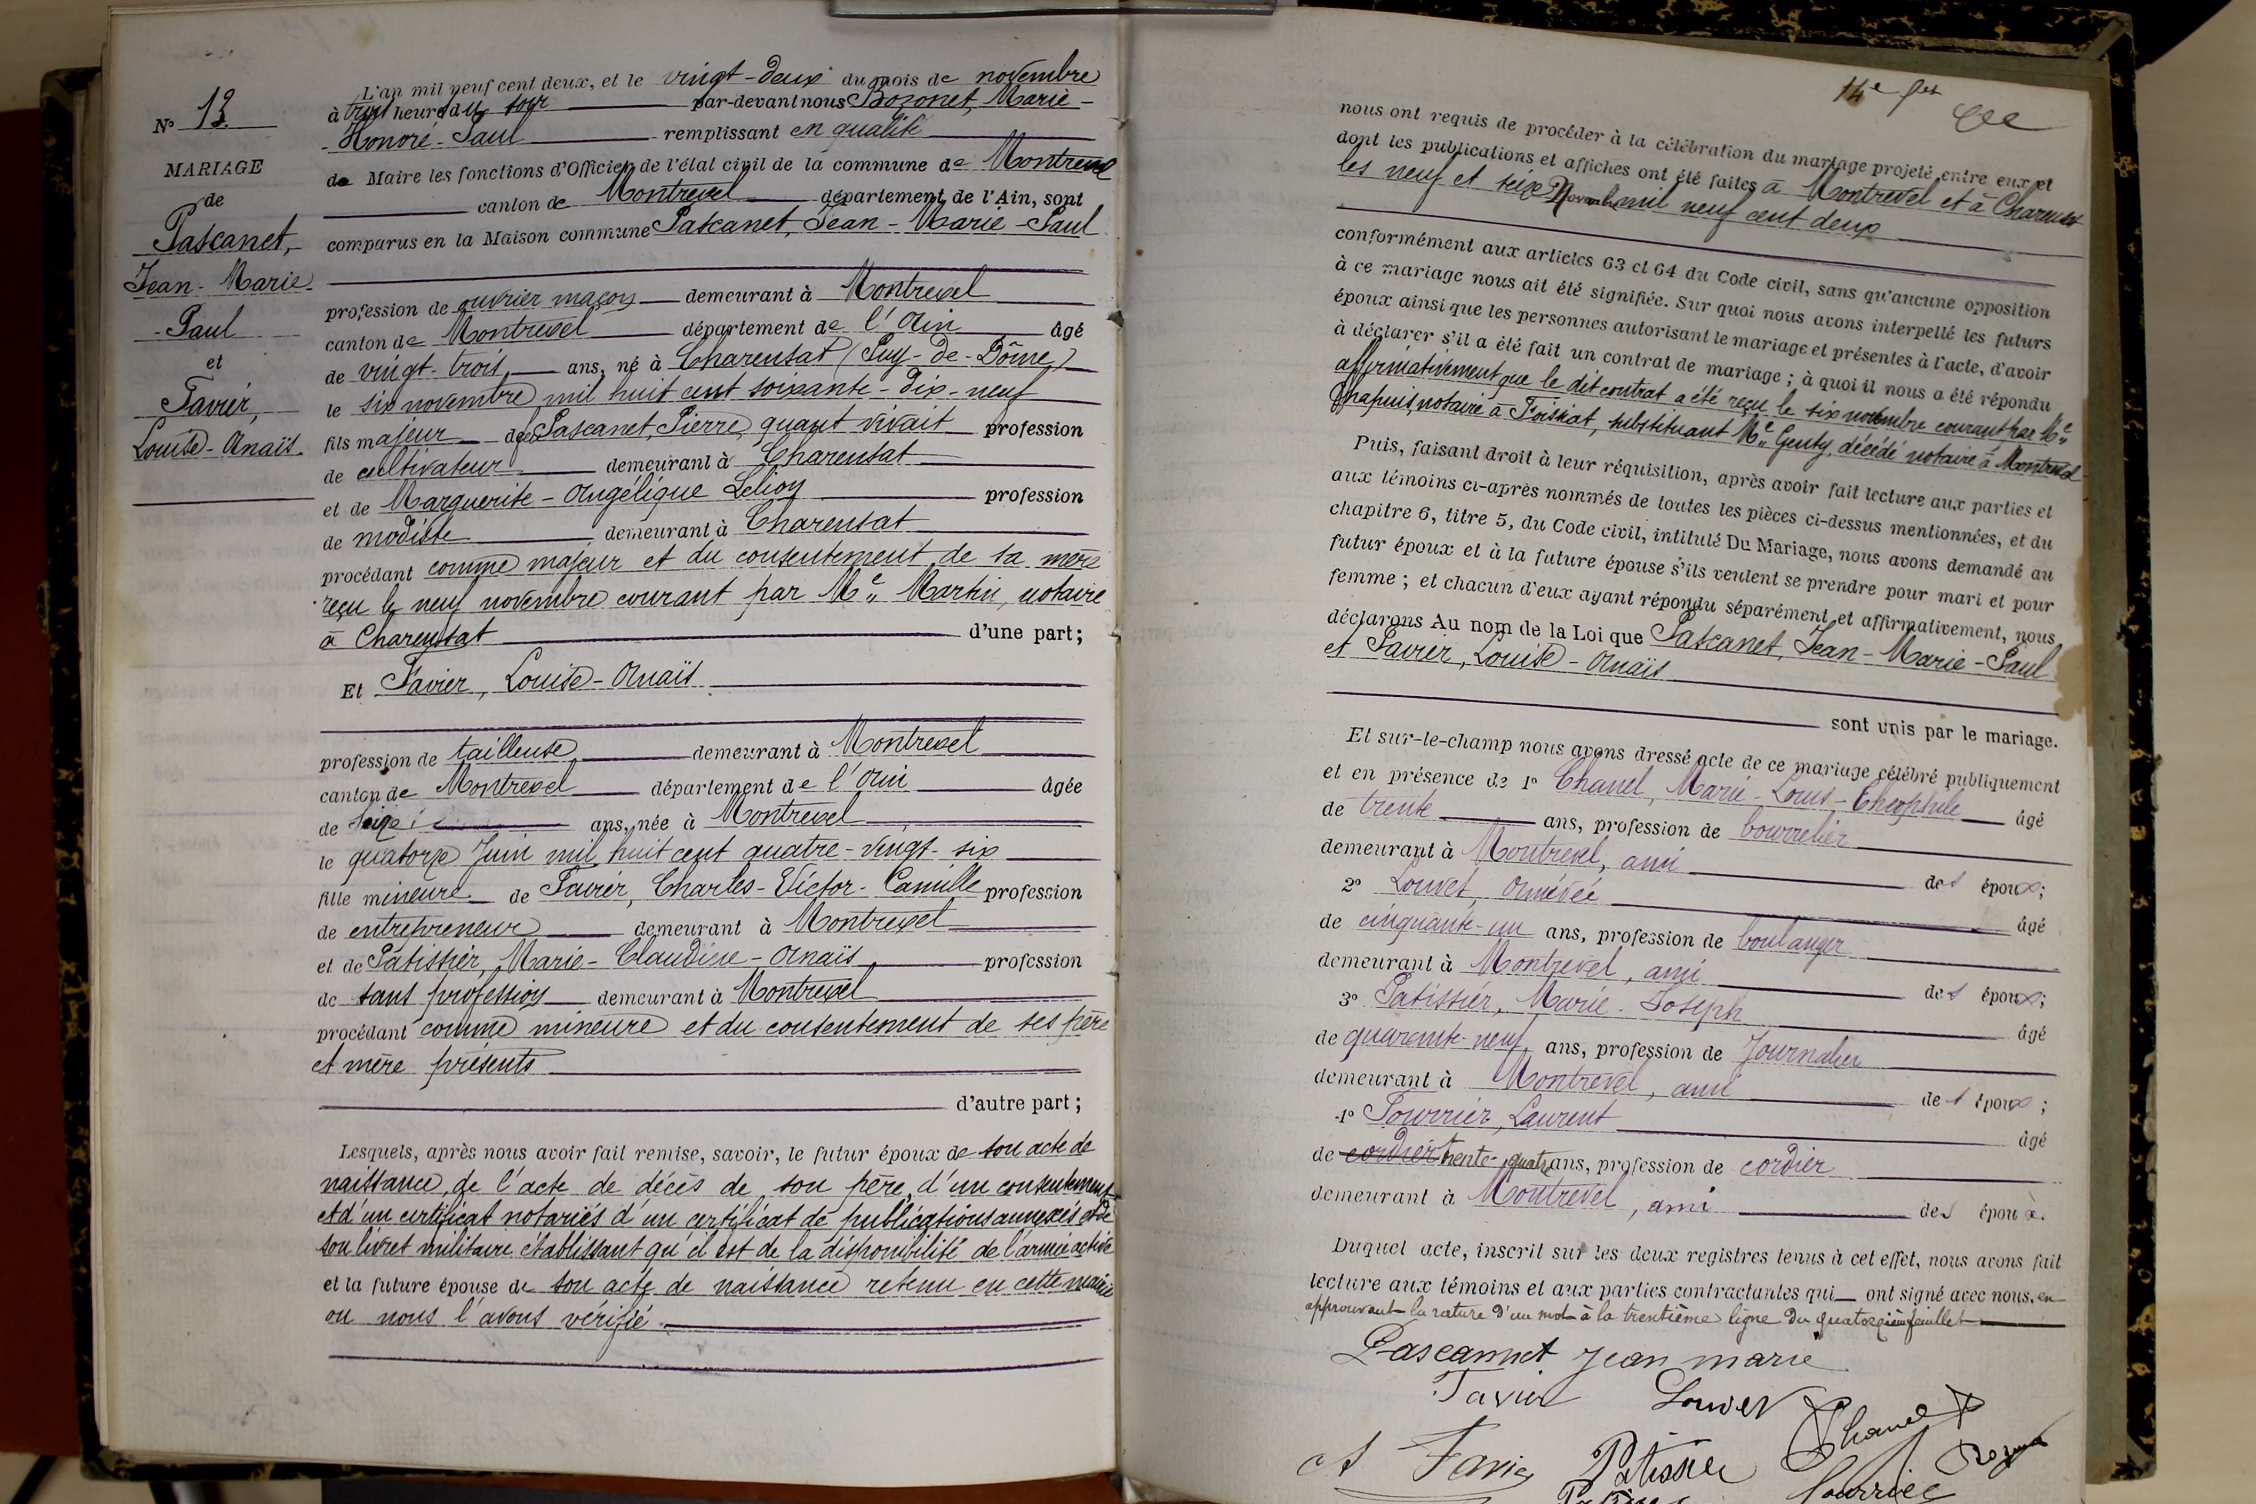 N° 13
MARIAGE
de
Pascanet,
Jean-Marie-
-Paul
et
Favier,
Louise-Anaïs.
L'an mil neuf cent deux, et le vingt-deux du mois de novembre
à trois heures du soir par-devant nous Bozonet, Marie-
-Honoré-Paul remplissant en qualité
de Maire les fonctions d'Officier de l'état civil de la commune de Montrevel
canton de Montrevel département de l'Ain, sont
comparus en la Maison commune Pascanet, Jean-Marie-Paul
profession de ouvrier maçon demeurant à Montrevel
canton de Montrevel département de l'Ain âgé
de vingt-trois ans, né à Charensat (Puy-de-Dôme)
le six novembre mil huit cent soixante-dix-neuf
fils majeur de Pascanet, Pierre, quant vivait profession
de cultivateur demeurant à Charensat
et de Marguerite-Angélique profession
de modiste demeurant à Charensat
procédant comme majeur et du consentement de sa mère
reçu le neuf novembre courant par Me Martin, notaire
à Charensat d'une part;
Et Favier, Louise-Anaïs
profession de tailleuse demeurant à Montrevel
canton de Montrevel département de l'Ain âgée
de seize ans, née à Montrevel
le quatorze Juin mil huit cent quatre-vingt-six
fille mineure de Favier, Charles-Victor-Camille profession
de entrepreneur demeurant à Montrevel
et de Patissier, Marie-Claudine-Anaïs profession
de sans profession demeurant à Montrevel
procédant comme mineure et du consentement de ses père
et mère présents
d'autre part;
Lesquels, après nous avoir fait remise, savoir, le futur époux de son acte de
naissance, de l'acte de décès de son père, d'un consentement
et d'un certificat notariés d'un certificat de publications annexés et de
son livret militaire établissant qu'il est de la disponibilité de l'armée active
et la future épouse de son acte de naissance retenu en cette mairie
ou nous l'avons vérifié.
14e
nous ont requis de procéder à la célébration du mariage projeté entre eux et
dont les publications et affiches ont été faites à Montrevel et à Charensat
les neuf et seize Novembre mil neuf cent deux
conformément aux articles 63 et 64 du Code civil, sans qu'aucune opposition
à ce mariage nous ait été signifiée. Sur quoi nous avons interpellé les futurs
époux ainsi que les personnes autorisant le mariage et présentes à l'acte, d'avoir
à déclarer s'il a été fait un contrat de mariage; à quoi il nous a été répondu
affirmativement que le dit contrat a été reçu le six novembre courant par Me
Chapuis, notaire à Foissiat, substituant Me Genty, décédé notaire à Montrevel
Puis, faisant droit à leur réquisition, après avoir fait lecture aux parties et
aux témoins ci-après nommés de toutes les pièces ci-dessus mentionnées, et du
chapitre 6, titre 5, du Code civil, intitulé Du Mariage, nous avons demandé au
futur époux et à la future épouse s'ils veulent se prendre pour mari et pour
femme; et chacun d'eux ayant répondu séparément et affirmativement, nous
déclarons Au nom de la Loi que Pascanet, Jean-Marie-Paul
et Favier, Louise-Anaïs
sont unis par le mariage.
Et sur-le-champ nous avons dressé acte de ce mariage célébré publiquement
et en présence de 1° Chanel, Marie-Louis-Théophile âgé
de trente ans, profession de bourrelier
demeurant à Montrevel, ami des époux;
2° Louvet, Aimé âgé
de cinquante-un ans, profession de boulanger
demeurant à Montrevel, ami des époux;
3° Patissier, Marie-Joseph âgé
de quarante-neuf ans, profession de Journalier
demeurant à Montrevel, ami des époux;
4° Fourrier, Laurent âgé
de cordier trente-quatre ans, profession de cordier
demeurant à Montrevel, ami des époux.
Duquel acte, inscrit sur les deux registres tenus à cet effet, nous avons fait
lecture aux témoins et aux parties contractantes qui ont signé avec nous, en
approuvant la rature d'un mot à la trentième ligne du quatorzième feuillet
Pascannet Jean marie
Favier Louvet Chanel
A Favier Patissier